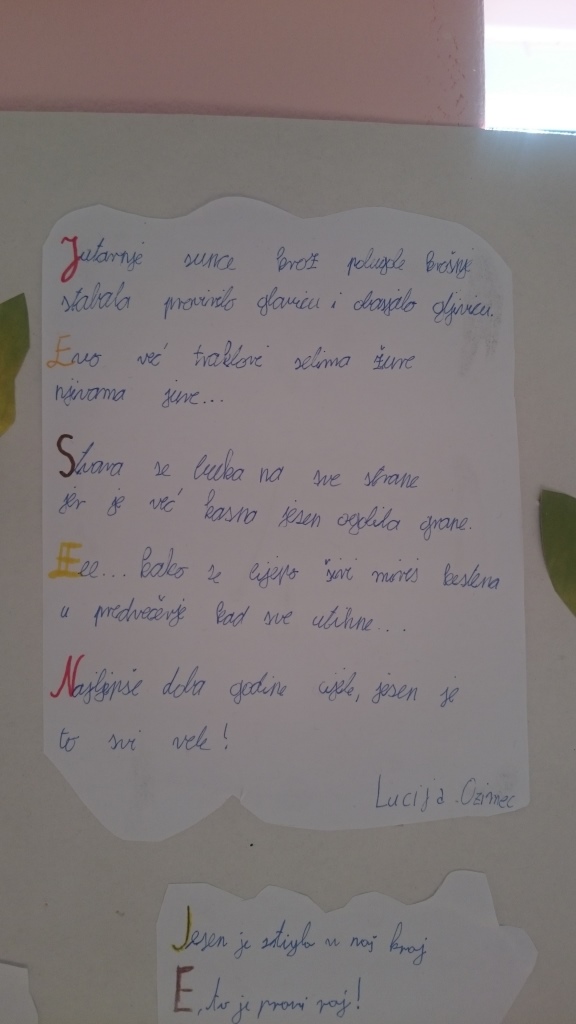 Jutarnje sunce kroz polugole krošnje
stabala provirilo glavicu i obasjalo gljivicu.
Evo već traktori selima žure
njivama jure...
Stvara se buka na sve strane
jer je već kasna jesen ogolila grane.
Eee... kako se lijepo širi miris kestena
u predvečerje kad sve utihne...
Najljepše doba godine cijele, jesen je
to svi vele!
Lucija Ozimec
Jesen je stigla u naš kraj
E, to je pravi raj!